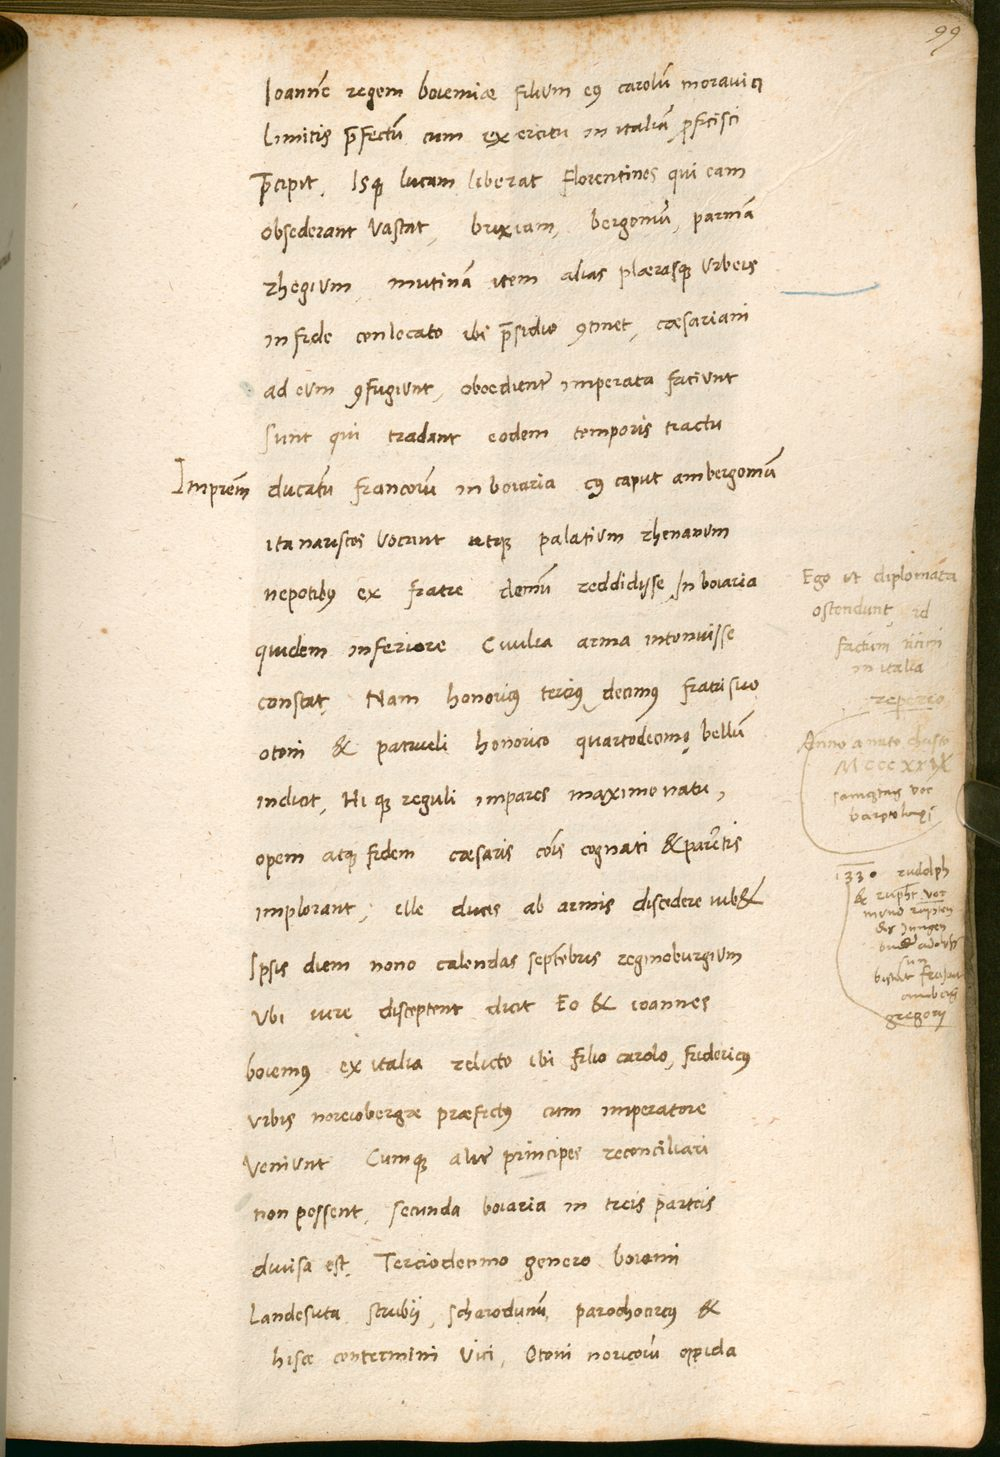 99
Ioannē regem boiemiæ filium eꝰ carolū moraviæ
limitis p̄fectū cum exercitu in italiā proficisci
p̄cipit, Isq; lucam liberat Florentinos qui eam
obsederant vastat, brixiam, bergomū, parmā
rhegium mutinā item alias plærasq; vrbeis
in fide conlocato ibi p̄sidio ꝯtinet, cæsariani
ad eum ꝯfugiunt, oboedienter imperata faciunt
sunt qui tradant eodem temporis tractu
Imprem̄ ducatū francorū in boiaria cꝰ caput ambergomū
ita nariscos vocant atq; palatium rhenanum
nepotibꝰ ex fratre demū reddidisse, In boiaria
quidem inferiore Civilia arma intonuisse
constat, Nam honoricꝰ terciꝰ decimꝰ fratri suo
otoni & patrueli honorico quartodecimo, bellū
indicit, Hi q; reguli impares maximo natu,
opem atq; fidem cæsaris cōis cognati & parētis
implorant, ille duces ab armis discedere iubet
Ipsis diem nono calendas septēbris reginoburgium
Vbi iure disceptent dicit Eo & ioannes
boiemꝰ ex italia relicto ibi filio carolo, fridericꝰ
vrbis noreiobergæ præfectꝰ cum imperatore
veniunt Cumq; aliter principes reconciliari
non possent, secunda boiaria in treis parteis
divisa est, Terciodecimo genero boiemi
Landesuta strubij, schærodunū, parochoircꝰ &
hisce contermini vici, Otoni noricorū oppida
Ego ut diplomata
ostendunt id
factum
in italia
reperio
Anno a nato christo
MCCCXXIX
samgtag vor
1330 rudolph
& rupht vor
gregorij